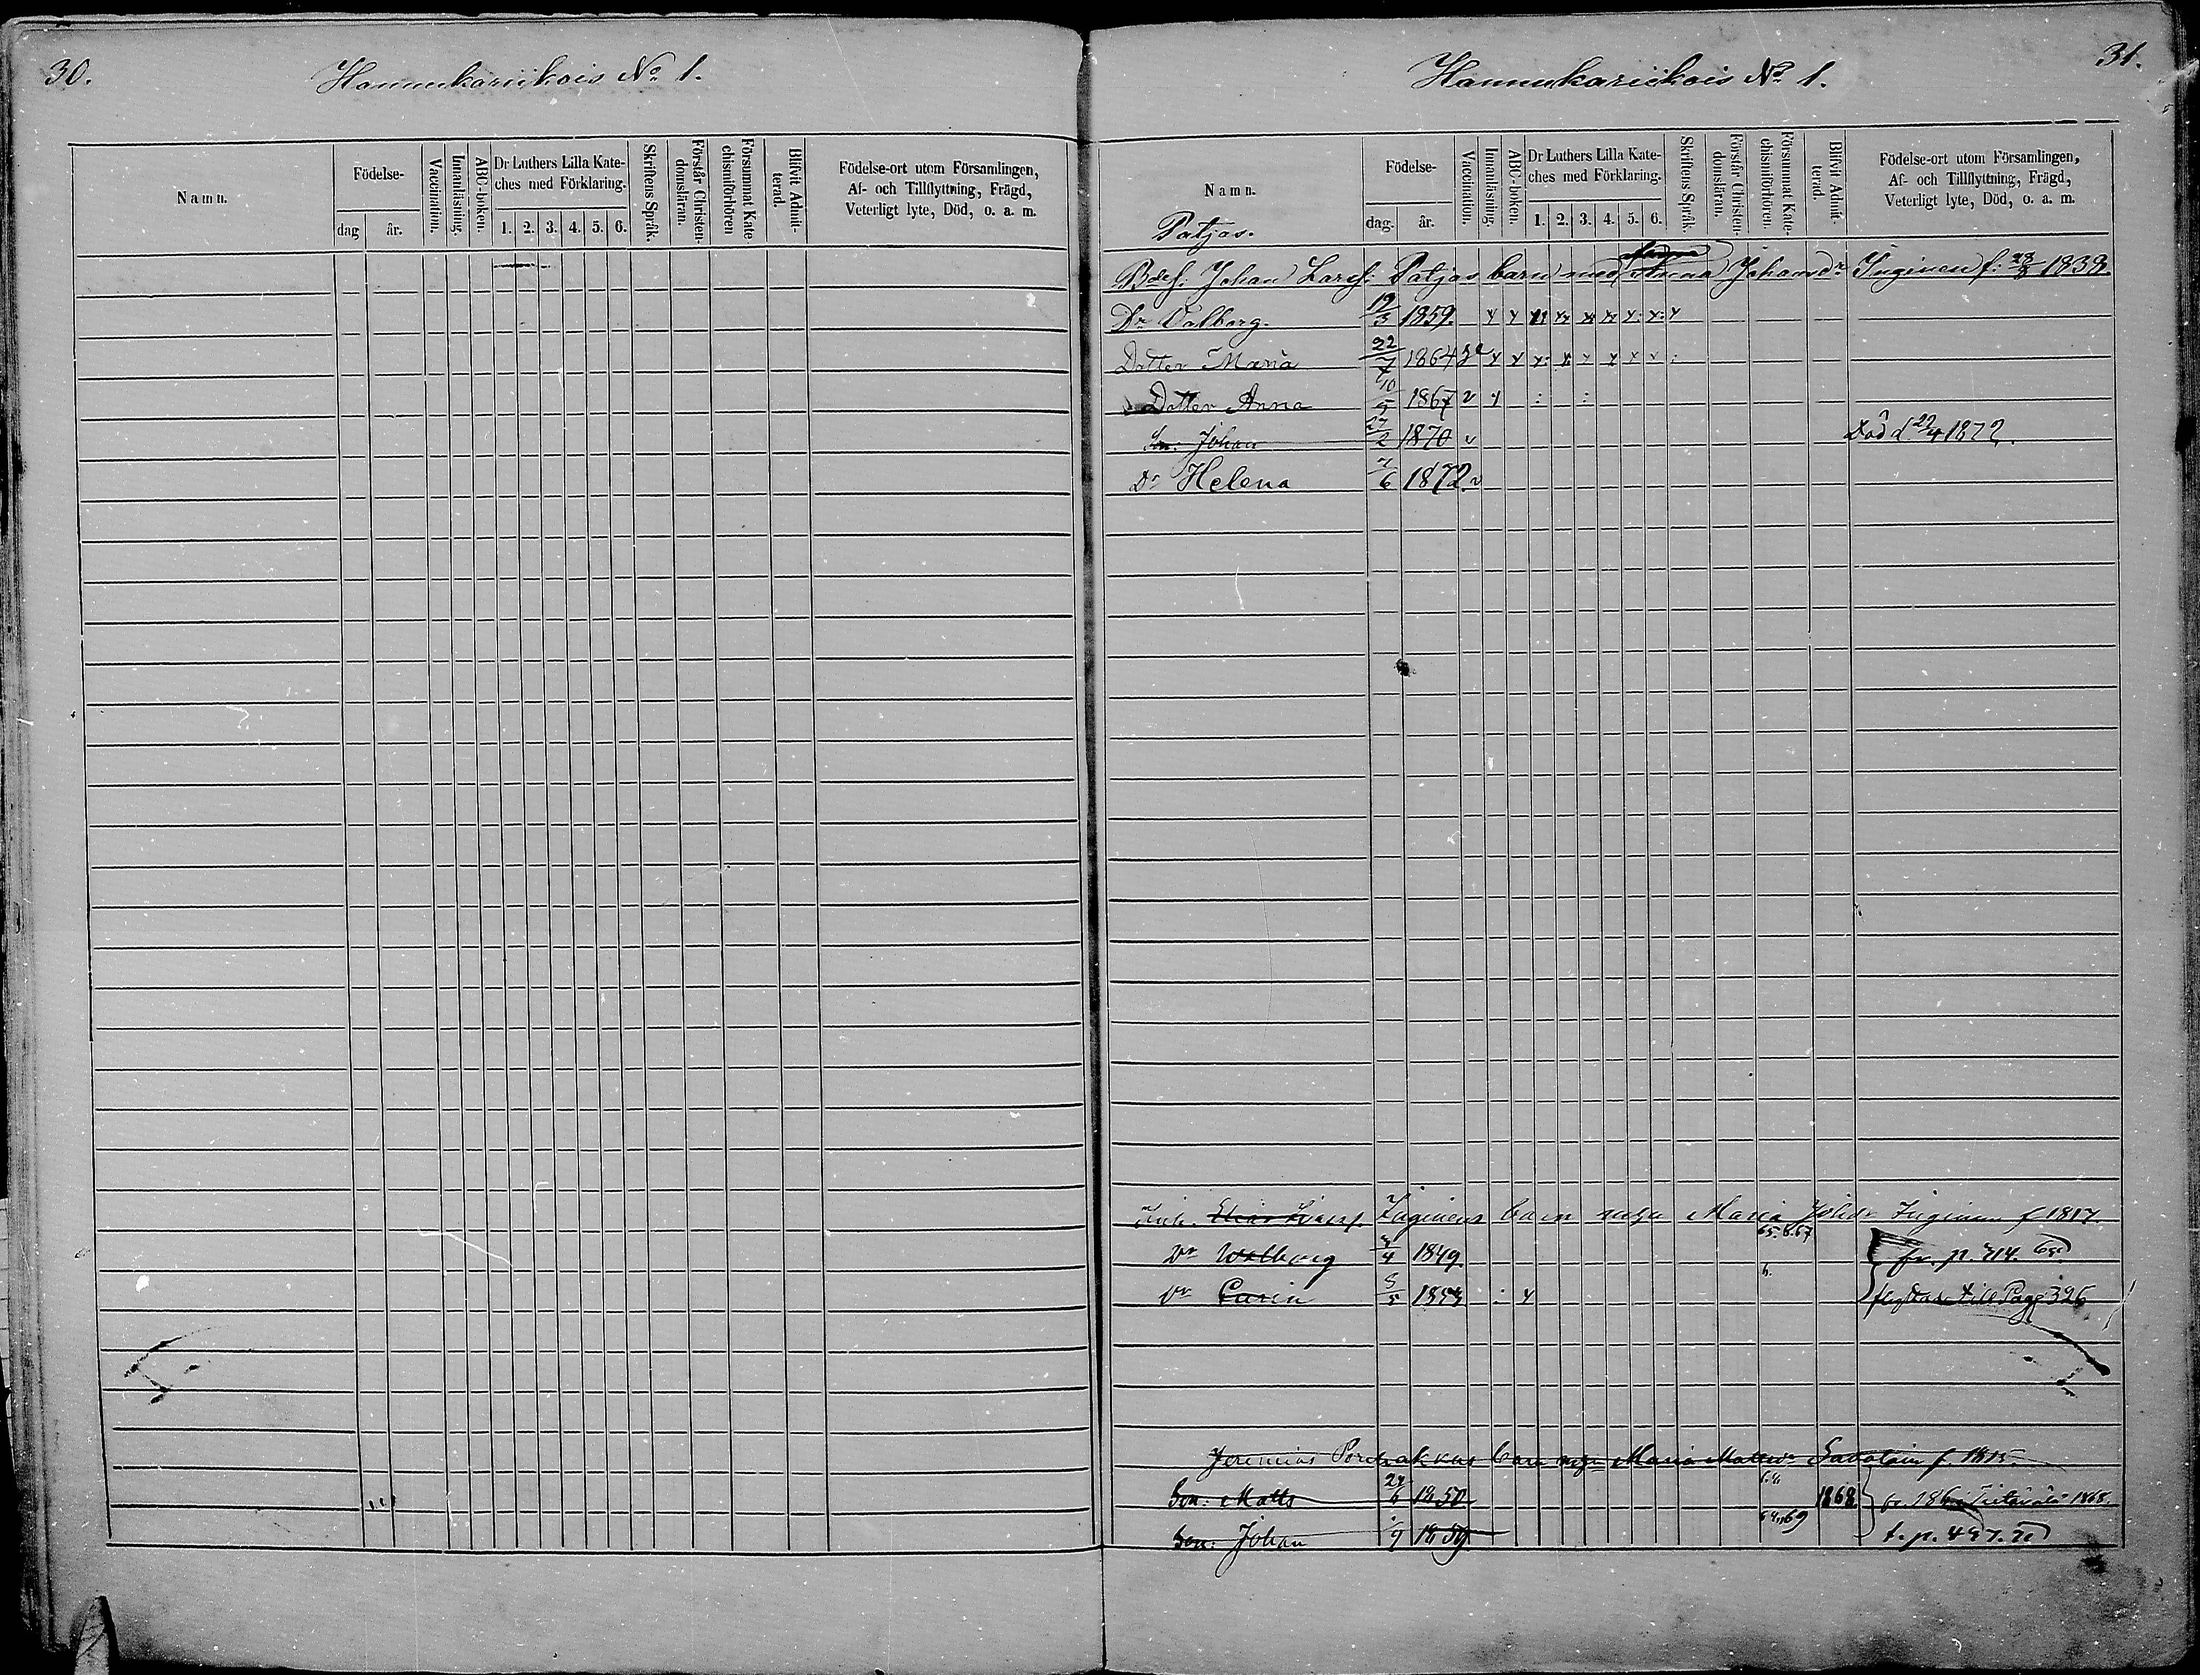 30.
Hannukariikois No 1.
Namn.
Födelse-
dag
år.
Vaccination.
Innanläsning.
ABC-boken.
Dr Luthers Lilla Kate-
ches med Förklaring.
1. 2. 3. 4. 5. 6.
Skriftens Språk.
Förstår Christen-
domsläran.
Försummat Kate
chismiförhören
Blifvit Admit-
terad.
Födelse-ort utom Församlingen,
Af- och Tillflyttning, Frägd,
Veterligt lyte, Död, o. a. m.
31.
Hannukariikois No 1.
Namn.
Födelse-
dag.
år.
Vaccination.
Innanläsning.
ABC-boken.
Dr Luthers Lilla Kate-
ches med Förklaring.
1. 2. 3. 4. 5. 6.
Skriftens Språk.
Förstår Christen-
domsläran.
Försummat Kate-
chismiförhören.
Blifvit Admit-
terad.
Födelse-ort utom Församlingen,
Af- och Tillflyttning, Frägd,
Veterligt lyte, Död, o. a. m.
Patjas.
Johan Larsf. Patjas barn med Anna Johansdr Inginen f. 28/8 1838.
Dr Valborg. 19/3 1859.
Dotter Maria 22/7 1864
Dotter Anna 10/5 1867 v
Son. Johan 27/2 1870 v Död d 22/4 1872.
Dr Helena 7/6 1872. v
Inginens barn Maria Johdr Inginen f 1817.
65. 6. 67
Dr Walborg 1849. fr. p. 714.
Dr Carin 5/5 1853 flyttar till Page 326
Jeremias barn Maria f. 1815
Son: Matts 24/6 1850 1868 1868.
Son: Johan 1859 69 t. p. 497.